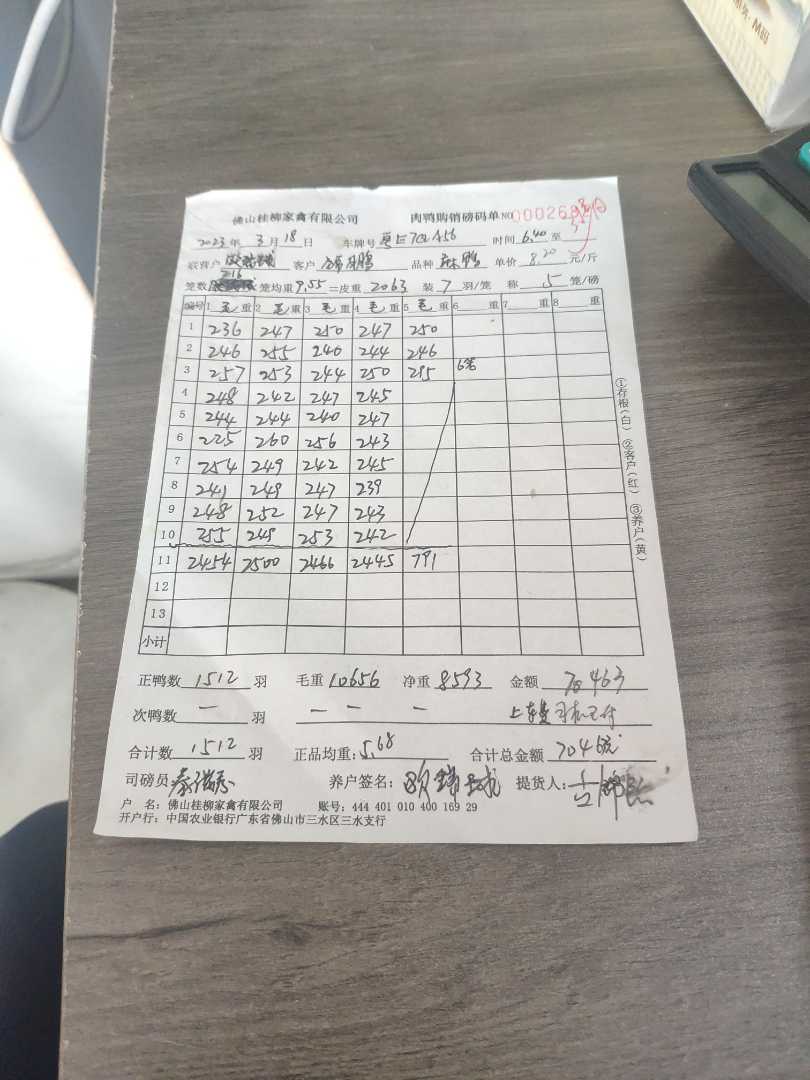 佛山桂柳家禽有限公司 肉鸭购销磅码单 NO 000268
2023年 3月 18日 车牌号 456 时间 6.40 至
联营户 客户 品种 麻鸭 单价 8.20 元/斤
216
笼数 笼均重 9.55 =皮重 2063 装 7 羽/笼 称 5 笼/磅
编号 1 毛 重 2 毛 重 3 毛 重 4 毛 重 5 毛 重 6 重 7 重 8 重
1 236 247 250 247 250
2 246 255 240 244 246
3 257 253 244 250 295 6笼
4 248 242 247 245
5 244 244 240 247
6 225 260 256 243
7 254 249 242 245
8 241 249 247 239
9 248 252 247 243
10 255 249 253 242
11 2454 2500 2466 2445 791
12
13
小计
①存根(白) ②客户(红) ③养户(黄)
正鸭数 1512 羽 毛重 10656 净重 8593 金额 70463
次鸭数 — 羽 — — —
合计数 1512 羽 正品均重: 5.68 合计总金额 70463
司磅员 养户签名: 提货人:
户 名: 佛山桂柳家禽有限公司 账号: 444 401 010 400 169 29
开户行: 中国农业银行广东省佛山市三水区三水支行